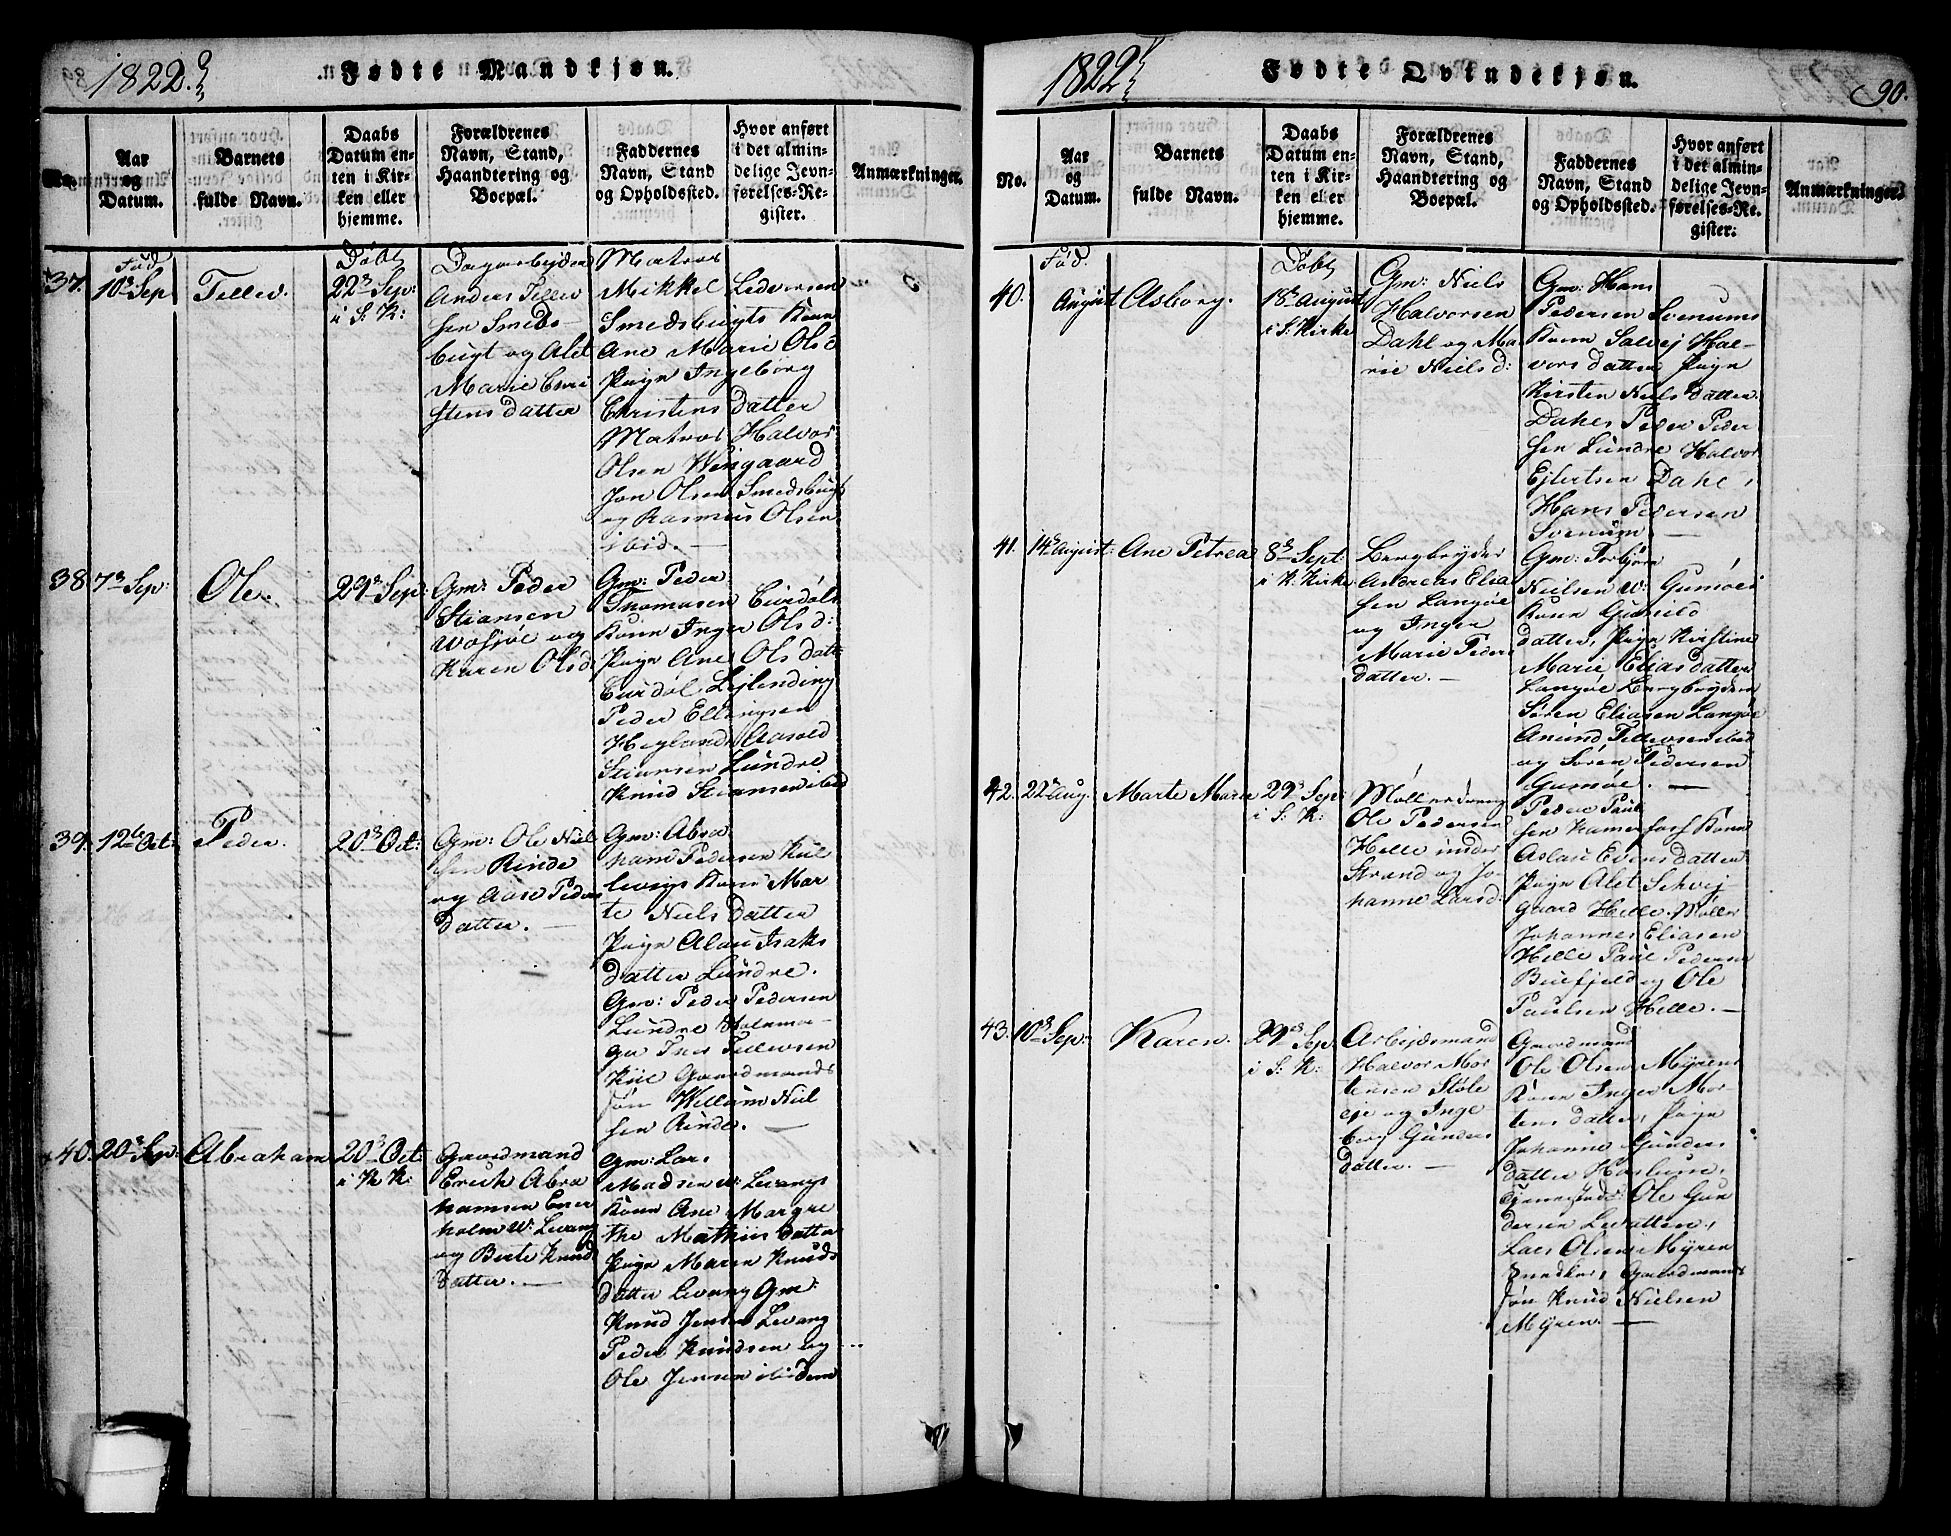 1822.
Fødte Mandkjøn.
No.
Aar
og
Datum.
Barnets
fulde Navn.
Daabs
Datum en-
ten i Kir-
ken eller
hjemme.
Forældrenes
Navn, Stand,
Haandtering og
Boepæl.
Faddernes
Navn, Stand
og Opholdssted.
Hvor anført
i det almin-
delige Jevn-
førelses-Re-
gister.
Anmærkninger.
37.
Fød
10de Sep
Tellev.
Døbt
22de Sep:
i S: K:
Dagarbejder
Anders Tellev
sen Smeds-
bugt og Alet
Marie Chri
stens datter
Matros
Mikkel Ledvorsen
Smedsbugts Kone
Ane Marie Ols d
Pign Ingeborg
Christens datter
Matros Halvor
Olsen Wiigaard
Jon Olsen Smedsbugt
og Rasmus Olsen
ibid. —
38
7de Sep:
Ole.
29de Sep:
Gm: Peder
Stiansen
Wosjøe og
Karen Olsd:
Gm: Peder
Thomasen Burdøls
Kone Inger Ols d:
Pign Ane Ols datt
Burdøl Lejlending
Peder Ellingsen
Heglands Aasold
Stiansen Lundre
Knud Stiansen ibid
39.
12te Oct:
Peder.
20de Oct:
Gm: Ole Niel
sen Rinde
og Aase Peders
datter. —
Gm: Abra
ham Pedersen Kiil
levigs Kone Mar
te Niels datter
Pign Alau Isaks
datter Lundre.
Gm: Peder Pedersen
Lundre
Tellevsen
Kiil Gaardmands
søn Willum Niel
sen Rinde. —
40.
20de Sep:
Abraham
20de Oct:
i K K:
Gaardmand
Erich Abra
hamsen Ener
holm W: Levang
og Berte Knuds
datter. —
Gm: Lars
Madsen W: Levangs
Kone Ane Margre
the Mathiis datter
Pign Maren Knuds
datter Levang Gm:
Knud Jensen Levang
Peder Knudsen og
Ole Jensen ibidem
1822
Fødte Qvindekjøn.
90.
No.
Aar
og
Datum.
Barnets
fulde Navn.
Daabs
Datum en-
ten i Kir-
ken eller
hjemme.
Forældrenes
Navn, Stand,
Haandtering og
Boepæl.
Faddernes
Navn, Stand
og Opholdssted.
Hvor anført
i det almin-
delige Jevn-
førelses-Re-
gister.
Anmærkninger.
40.
Fød.
August
Asborg.
Døbt
18de August
i S: Kirke
Gm: Niels
Halvorsen
Dahl og Ma
rie Niels d:
Gm: Hans
Pedersen Svenums
Kone Salvej Hal-
vors datter Pign
Kirsten Niels datter
Dahl, Peder Peder
sen Lundre Halvor
Ejlertsen Dahl,
Hans Pedersen
Svenum —
41.
14de August:
Ane Petrea
8de Sept
i K: Kirke
Bergbryder
Andreas Elia
sen Langøe
og Inger
Marie Peders
datter. —
Gm: Torbjørn
Nielsen W: Gumøes
Kone Gunild
datter, Pign Kirstine
Marie Elias datter
Langøe Bergbryder
Søren Eliasen Langøe
Anund Tellevsen ibid
og Søren Pedersen
Gumøe. —
42.
22de Aug.
Marte Marie
29de Sep:
i S: K:
Møllerdreng
Ole Pedersen
Helle under
Strand og Jo
hanne Larsd:
Peder Paul
sen Kamerfoss Kone
Aslau Evens datter
Pign Alet Schvej
gaard Helle. Møller
Johannes Eliasen
Helle Paul Pedersen
Ole
Paulsen Helle. —
43.
10de Sep:
Karen.
29de Sep.
i S: K:
Arbejdsmand
Halvor Mor
tensen Støle
eje og Inge
borg Gunders
datter. —
Gaardmand
Ole Olsen Myrens
Kone Inger Mor
tens datter, Pign
Johanne Gunders
datter
Ole Gun
dersen
Lars Olsen Myren
Gaardmands
søn Knud Nielsen
Myren. —